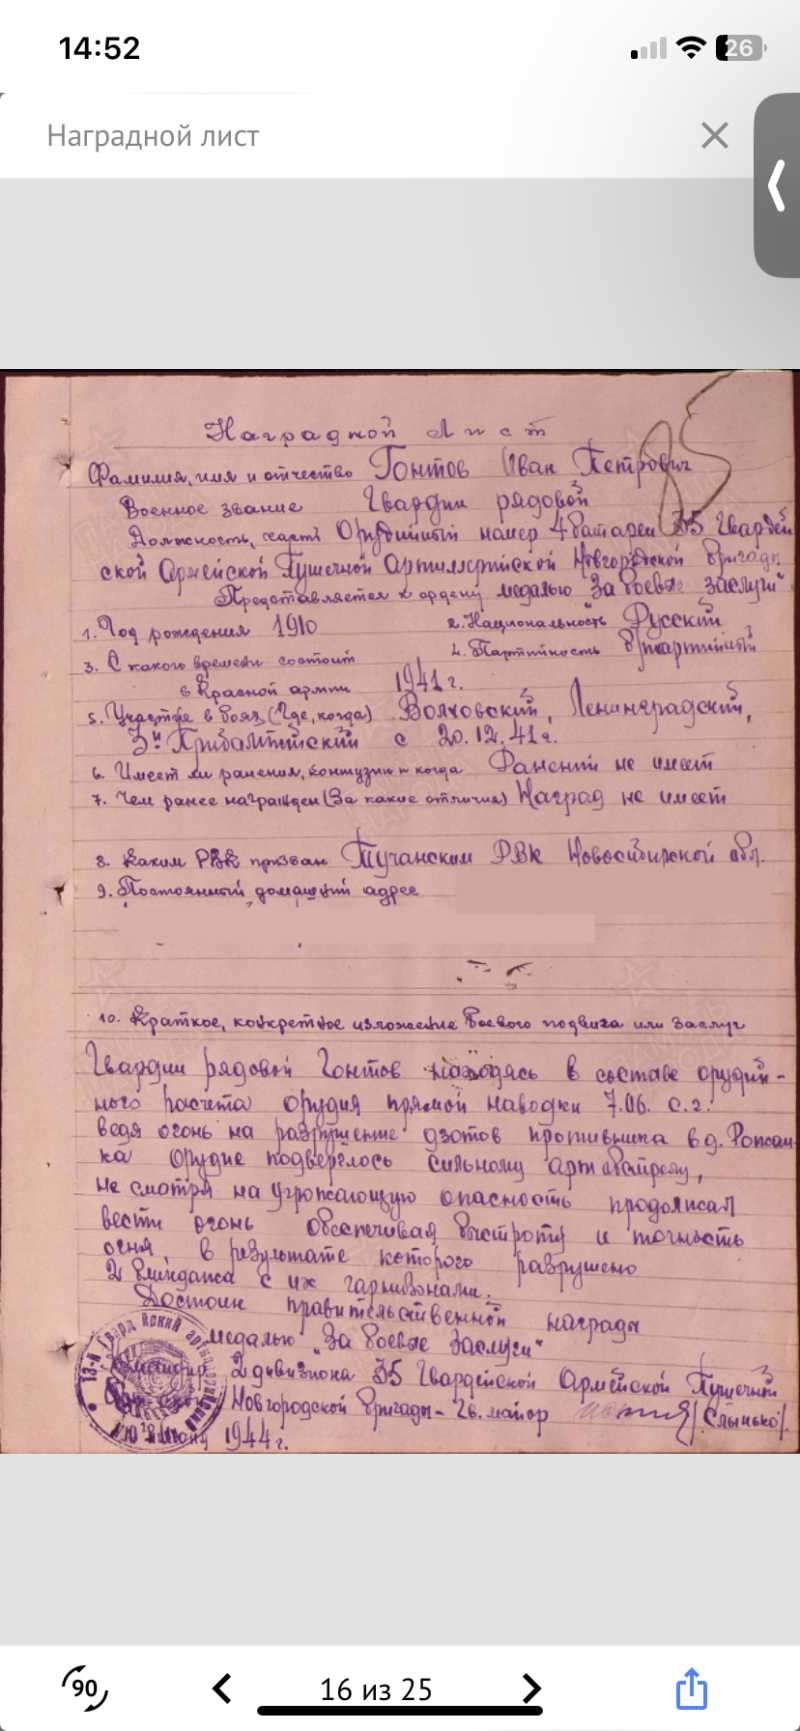 14:52
26
Наградной лист
Наградной Лист
Фамилия, имя и отчество Гонтов Иван Петрович
Военное звание Гвардии рядовой
Должность, часть Орудийный номер 4 батареи 35 Гвардей
ской Армейской Пушечной Артиллерийской Новгородской бригады
Представляется к ордену медалью "За боевые заслуги"
1. Год рождения 1910
2. Национальность Русский
3. С какого времени состоит
в Красной армии 1941 г.
4. Партийность
5. Участие в боях (Где, когда) Волховский, Ленинградский,
3й Прибалтийский с 20.12.41 г.
6. Имеет ли ранения, контузии и когда Ранений не имеет
7. Чем ранее награжден (За какие отличия) Наград не имеет
8. Каким РВК призван РВК Новосибирской обл.
9. Постоянный домашний адрес
10. Краткое, конкретное изложение боевого подвига или заслуг
Гвардии рядовой Гонтов находясь в составе орудий-
ного расчета орудия прямой наводки 7.06. с.г.
ведя огонь на разрушение дзотов противника в д.
ка орудие подверглось сильному артобстрелу,
не смотря на угрожающую опасность продолжал
вести огонь обеспечивая быстроту и точность
огня, в результате которого разрушено
2 блиндажа с их гарнизонами.
Достоин правительственной награды
медалью "За боевые Заслуги"
Командир 2 дивизиона 35 Гвардейской Армейской Пушечной
Новгородской бригады - Гв. майор /Слынько/.
1944 г.
90
16 из 25